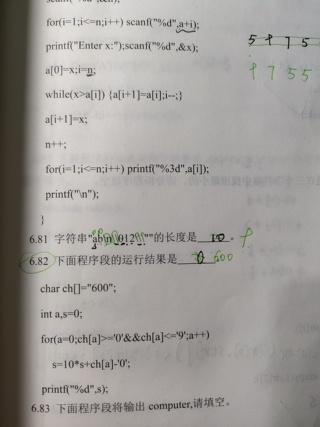 for(i=1;i<=n;i++) scanf("%d",a+i);
printf("Enter x:");scanf("%d",&x);
a[0]=x;i=n;
while(x>a[i]) {a[i+1]=a[i];i--;}
a[i+1]=x;
n++;
for(i=1;i<=n;i++) printf("%3d",a[i]);
printf("\n");
}
5 9 7 5
9 7 5 5
6.81 字符串"ab\n\\012\""的长度是 10 。 9
6.82 下面程序段的运行结果是 600
char ch[]="600";
int a,s=0;
for(a=0;ch[a]>='0'&&ch[a]<='9';a++)
s=10*s+ch[a]-'0';
printf("%d",s);
6.83 下面程序段将输出 computer,请填空。